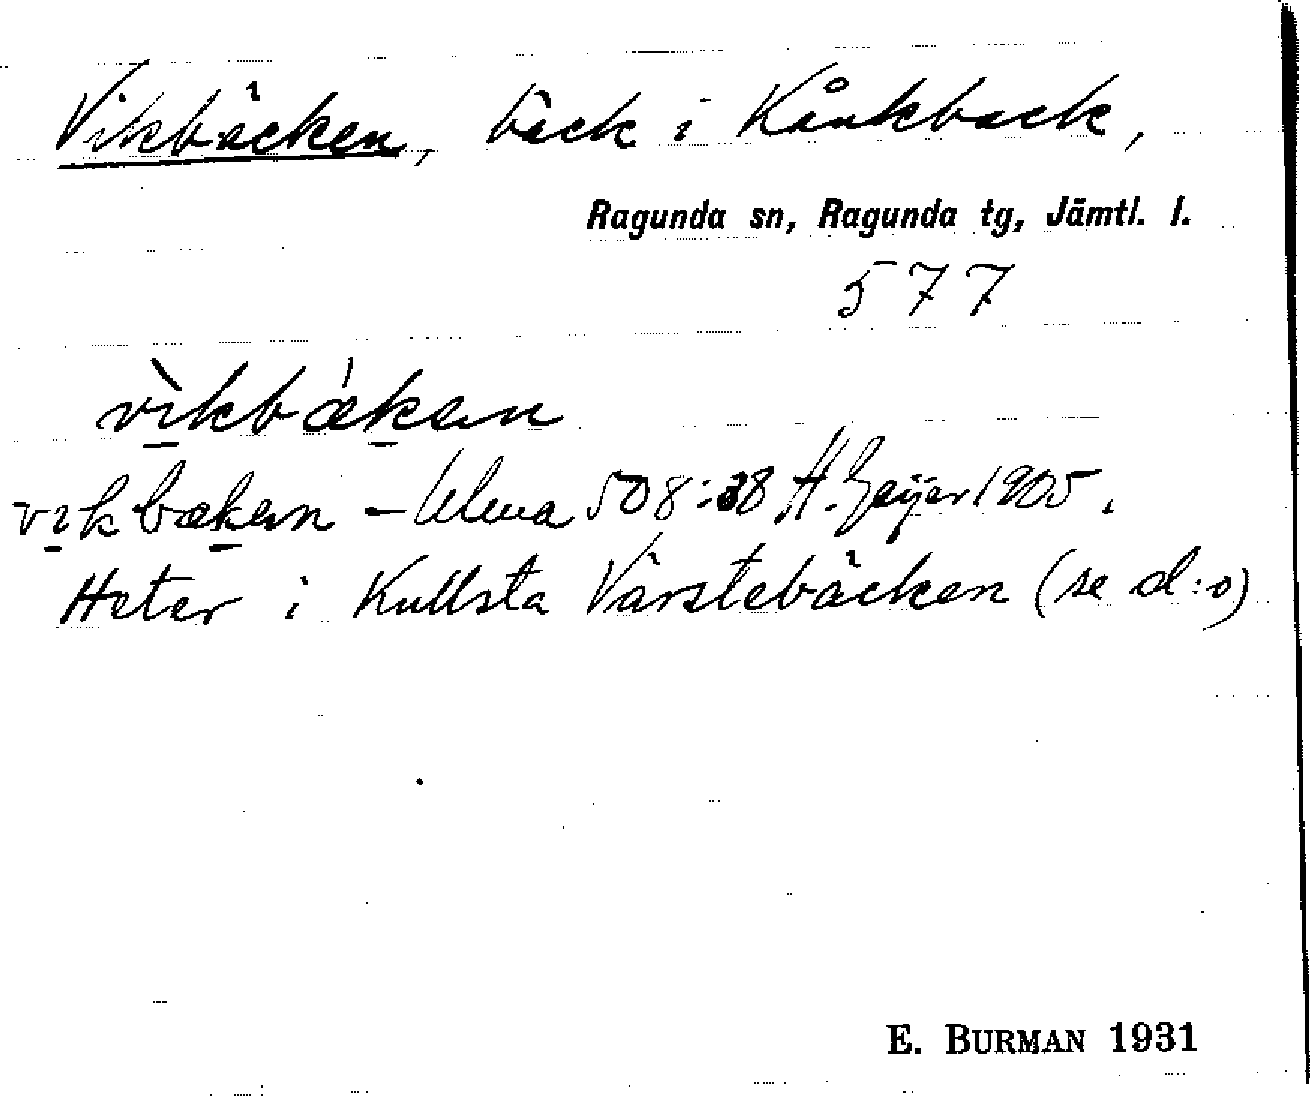 Vikbäcken, bäck i Kånkback,
Ragunda sn, Ragunda tg, Jämtl. l.
577
vìkbǽkan
vikbækan – Ulma 508:38 H. Geijer 1905.
Heter i Kullsta Vårstebäcken (se d:o)
E. BURMAN 1931